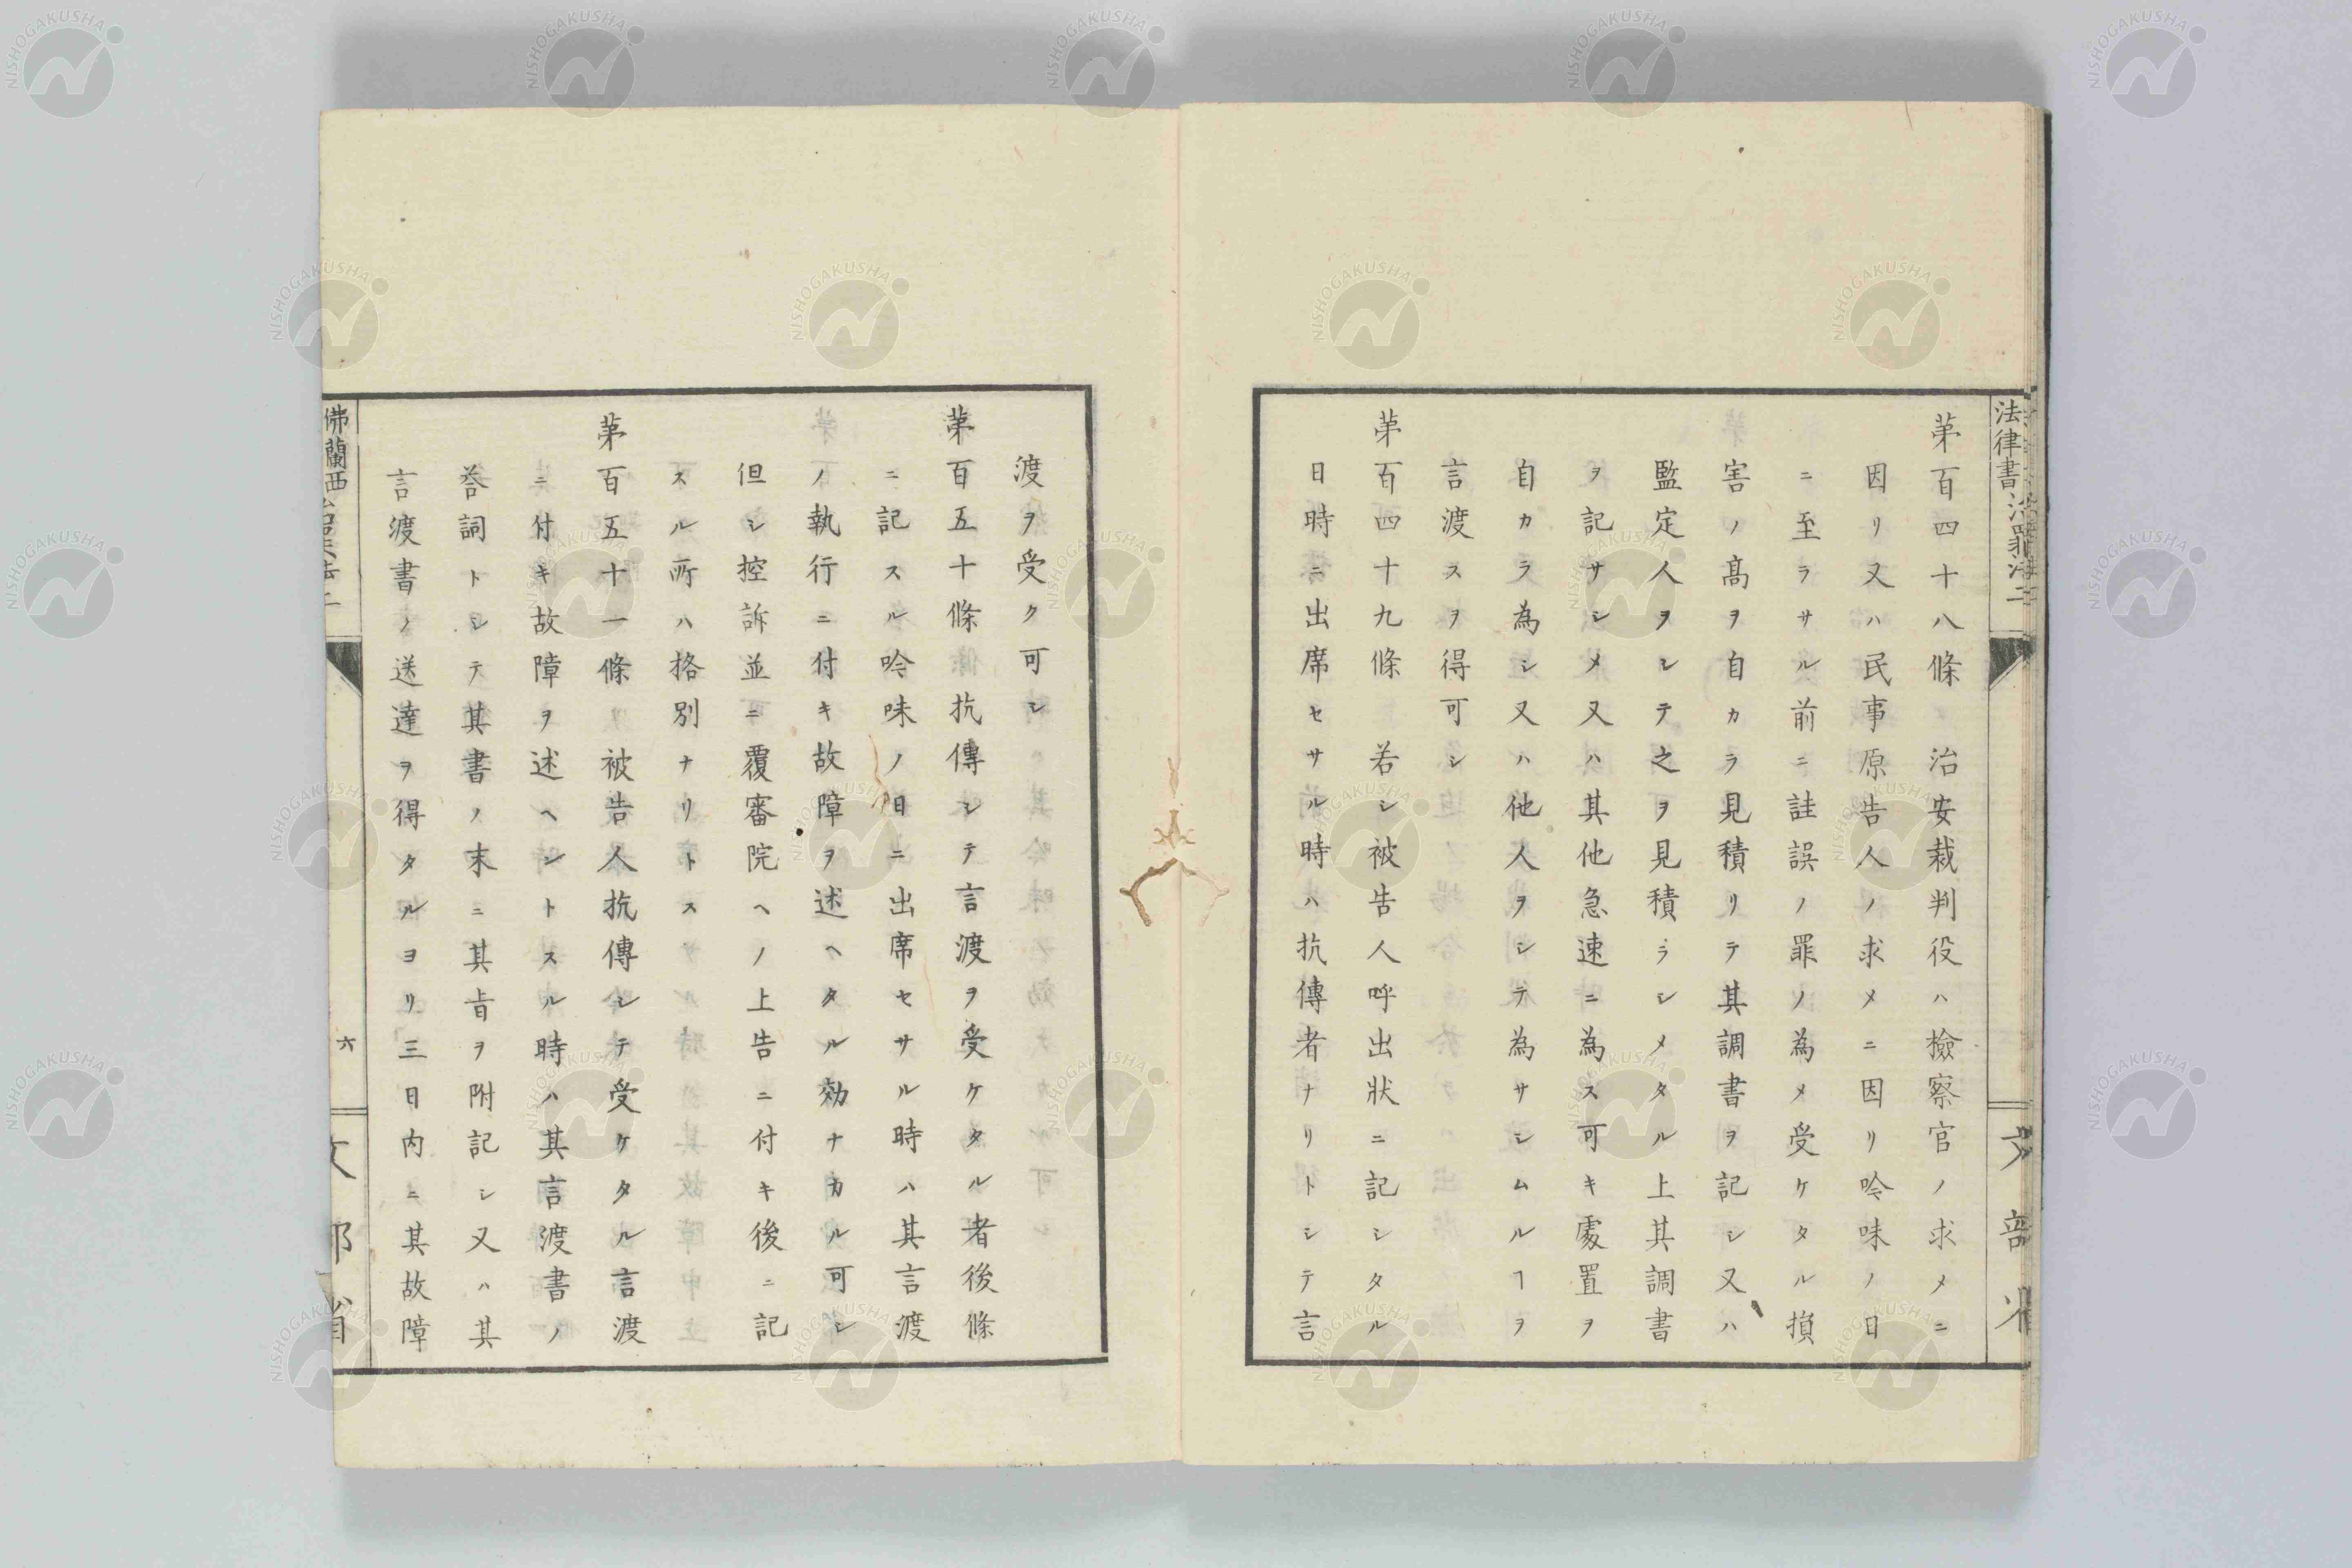 第百四十八條 治安裁判役ハ檢察官ノ求メニ
因リ又ハ民事原告人ノ求メニ因リ吟味ノ日
ニ至ラサル前ニ詿誤ノ罪ノ為メ受ケタル損
害ノ髙ヲ自カラ見積リテ其調書ヲ記シ又ハ
監定人ヲシテ之ヲ見積ラシメタル上其調書
ヲ記サシメ又ハ其他急速ニ為ス可キ處置ヲ
自カラ為シ又ハ他人ヲシテ為サシムルヿヲ
言渡スヲ得可シ
第百四十九條 若シ被告人呼出狀ニ記シタル
日時ニ出席セサル時ハ抗傳者ナリトシテ言
渡ヲ受ク可シ
第百五十條 抗傳シテ言渡ヲ受ケタル者後條
ニ記スル吟味ノ日ニ出席セサル時ハ其言渡
ノ執行ニ付キ故障ヲ述ヘタル効ナカル可シ
但シ控訴並ニ覆審院ヘノ上告ニ付キ後ニ記
スル所ハ格別ナリトス
第百五十一條 被告人抗傳シテ受ケタル言渡
ニ付キ故障ヲ述ヘントスル時ハ其言渡書ノ
荅詞トシテ其書ノ末ニ其旨ヲ附記シ又ハ其
言渡書ノ送達ヲ得タルヨリ三日内ニ其故障
佛蘭西
六
法律書
文部省
NISHOGAKUSHA